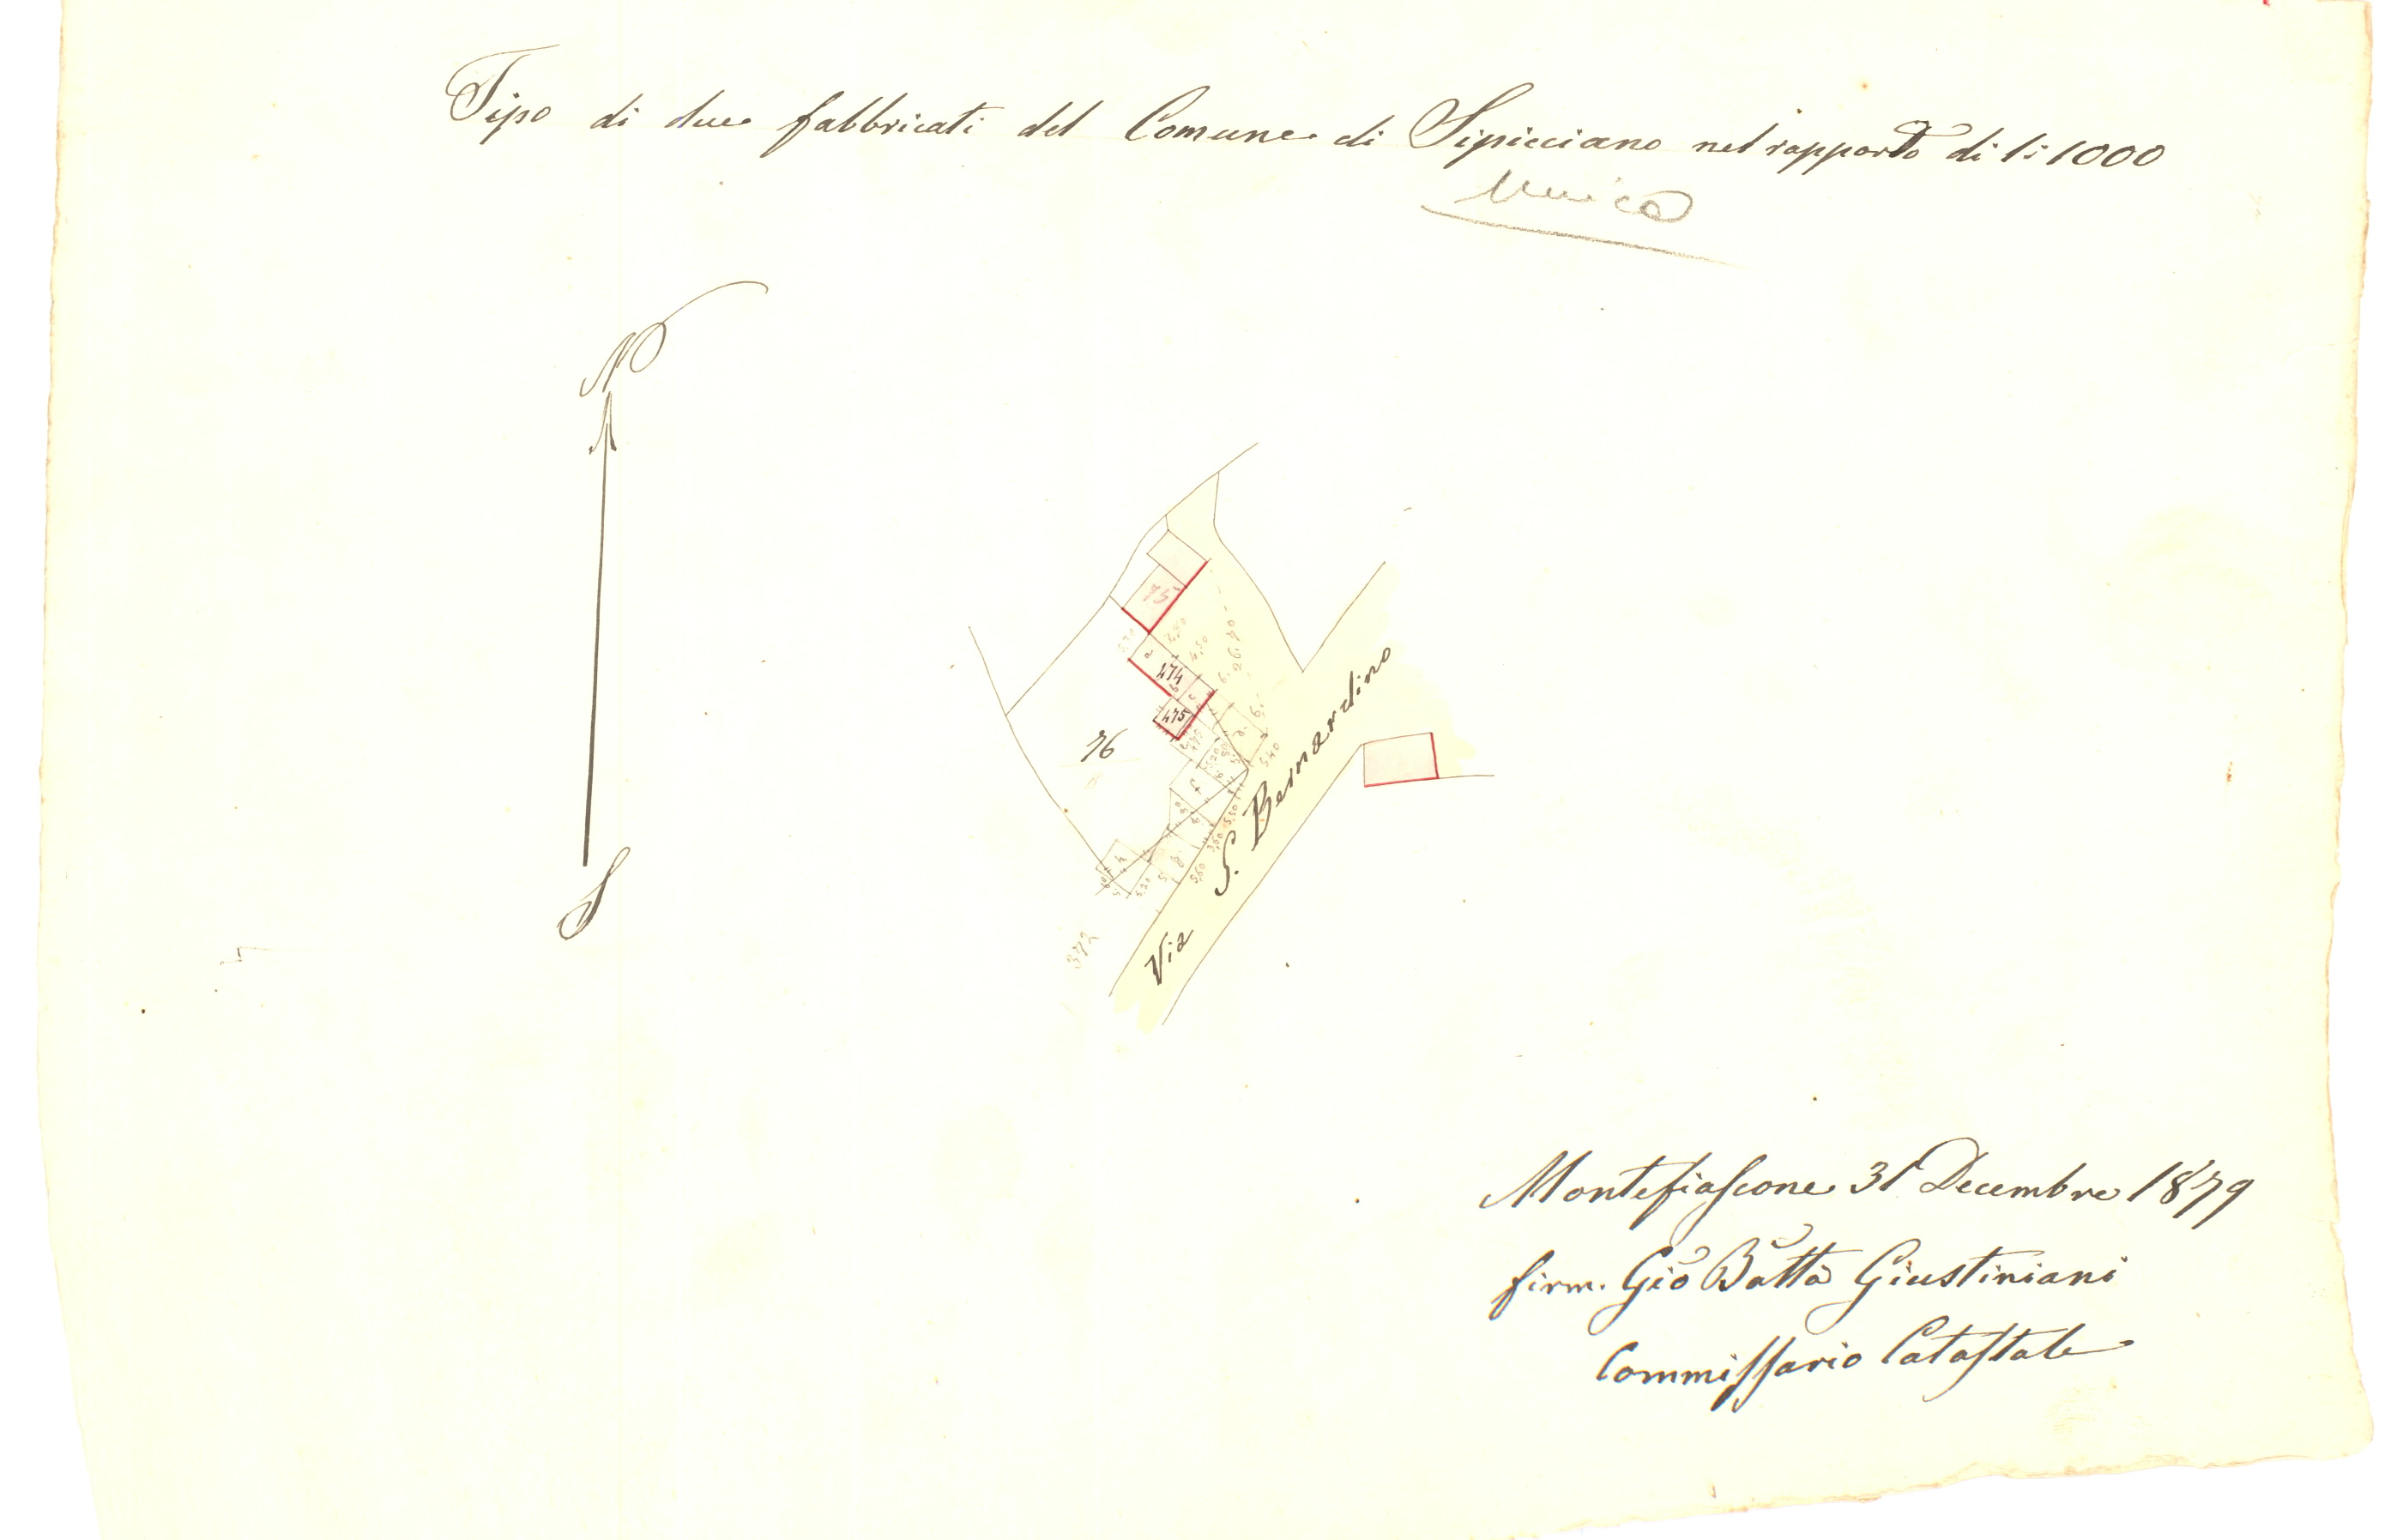 Tipo di due fabbricati del Comune di Sipicciano nel rapporto di 1:1000
Unico
N
S
75
474
475
76
Via S. Bernardino
26.70
4,50
5,40
5,50
5,60
5,20
372
Montefiascone 31 Decembre 1879
firm. Gio Batta Giustiniani
Commissario Catastale